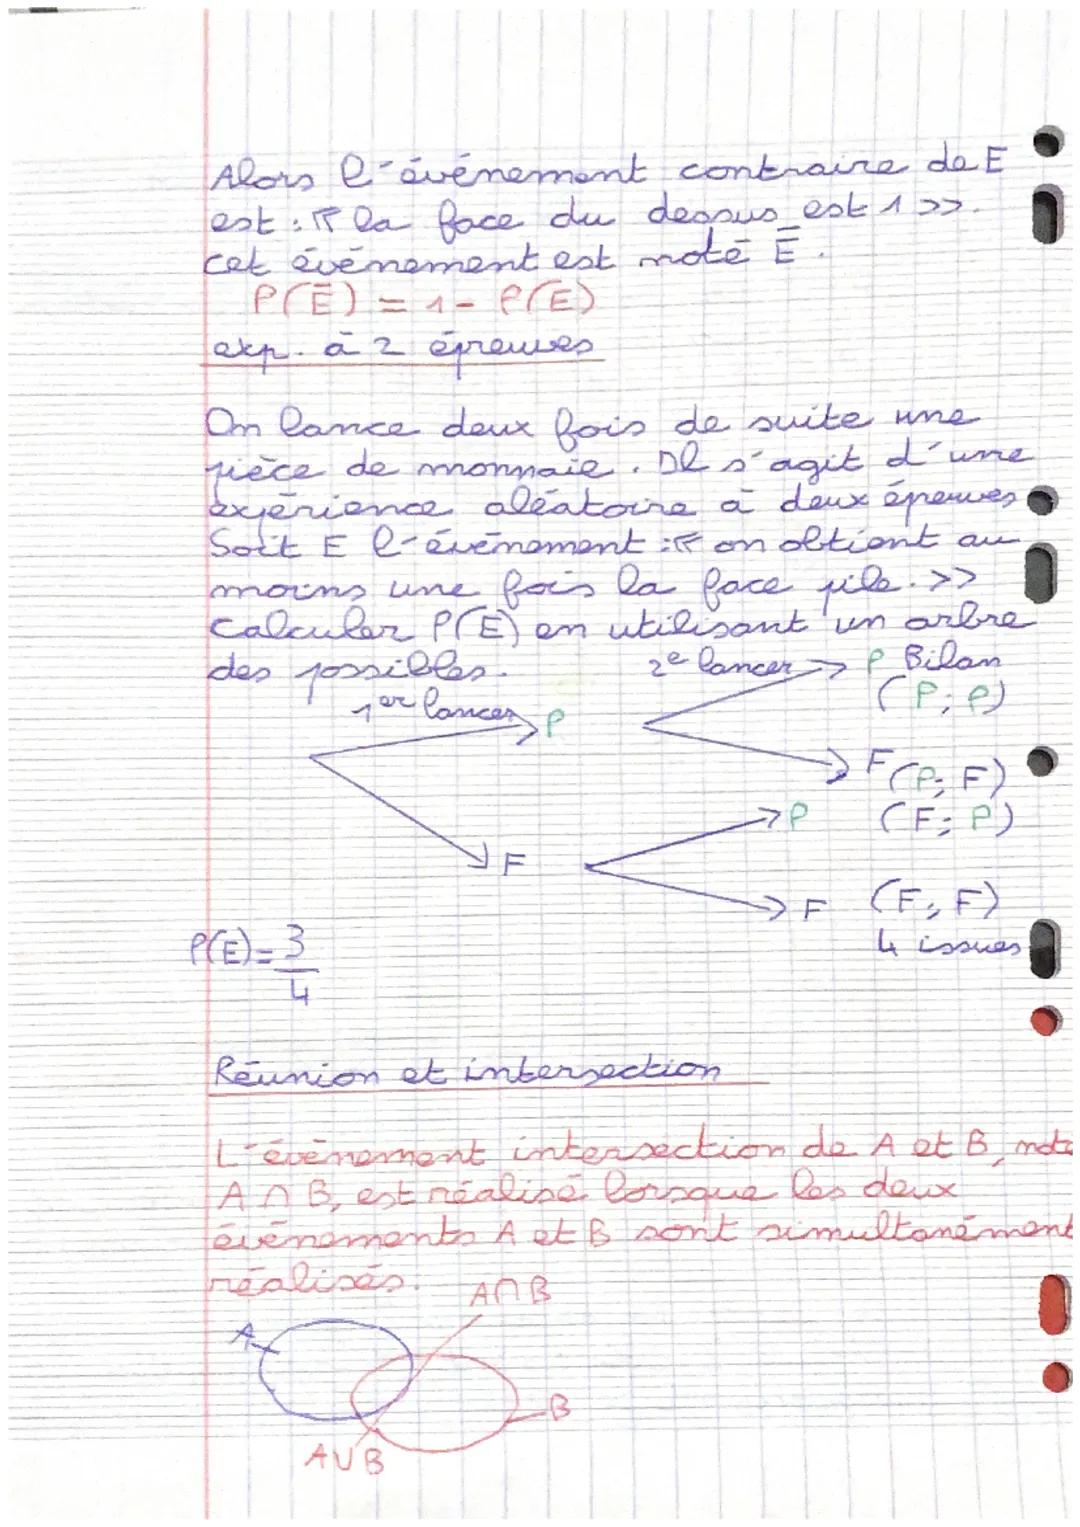 Alors l'événement contraire de E
est : « la face du dessus est 1 >>.
cet événement est noté Ē.
P(Ē) = 1 - P(E)
exp. à 2 épreuves
On lance deux fois de suite une
pièce de monnaie. Il s'agit d'une
expérience aléatoire à deux épreuves
Soit E l'événement : « on obtient au
moins une fois la face pile. >>
Calculer P(E) en utilisant un arbre
des possibles.
2e lancer P Bilan
(P; P)
1er lancer P
F (P; F)
P (F; P)
F
F (F; F)
4 issues
P(E) = 3
4
Réunion et intersection
L'évènement intersection de A et B, noté
A ∩ B, est réalisé lorsque les deux
événements A et B sont simultanément
réalisés.
A∩B
A
B
A∪B